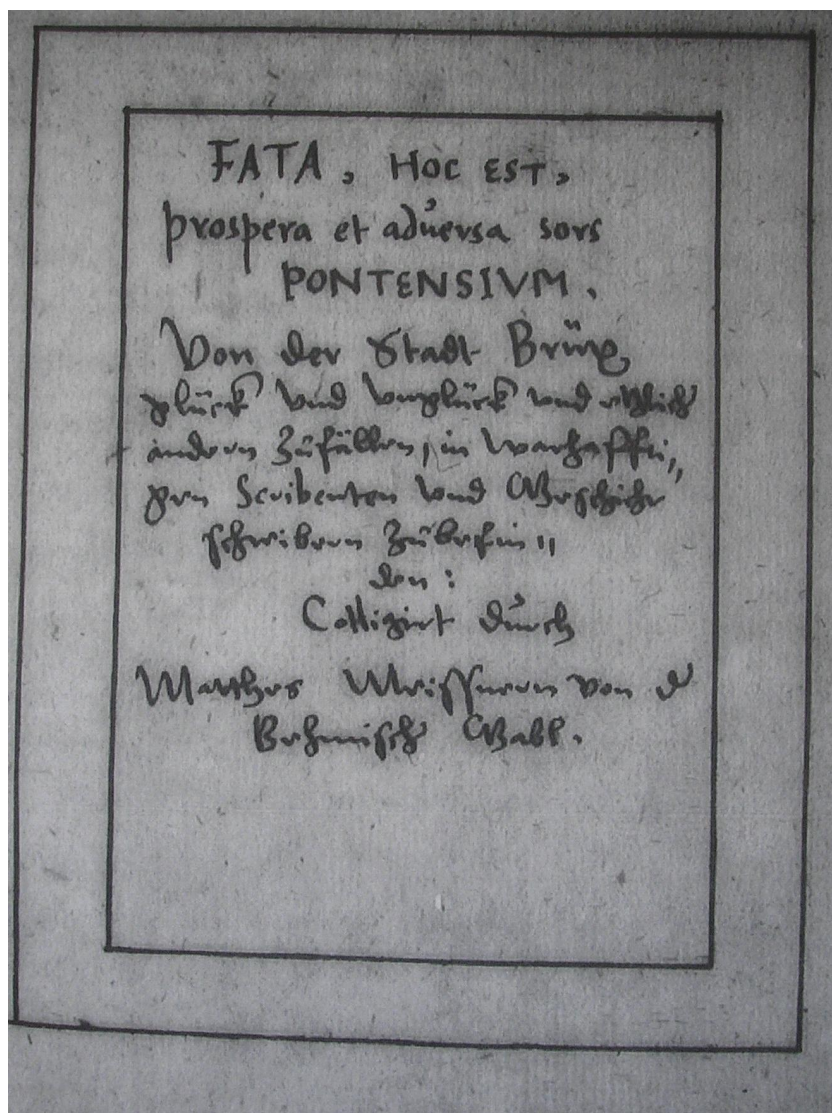 FATA, HOC EST,
prospera et aduersa sors
PONTENSIVM.
Von der Stadt Brüx,
glück vnd vnglück vnd etzlich
andern Zufällen, in warhaffti„
gen Scribenten vnd Geschicht
schreibern Zubefin„
den:
Colligirt durch
Matthes Meissnern von d
Behmisch Gabl.